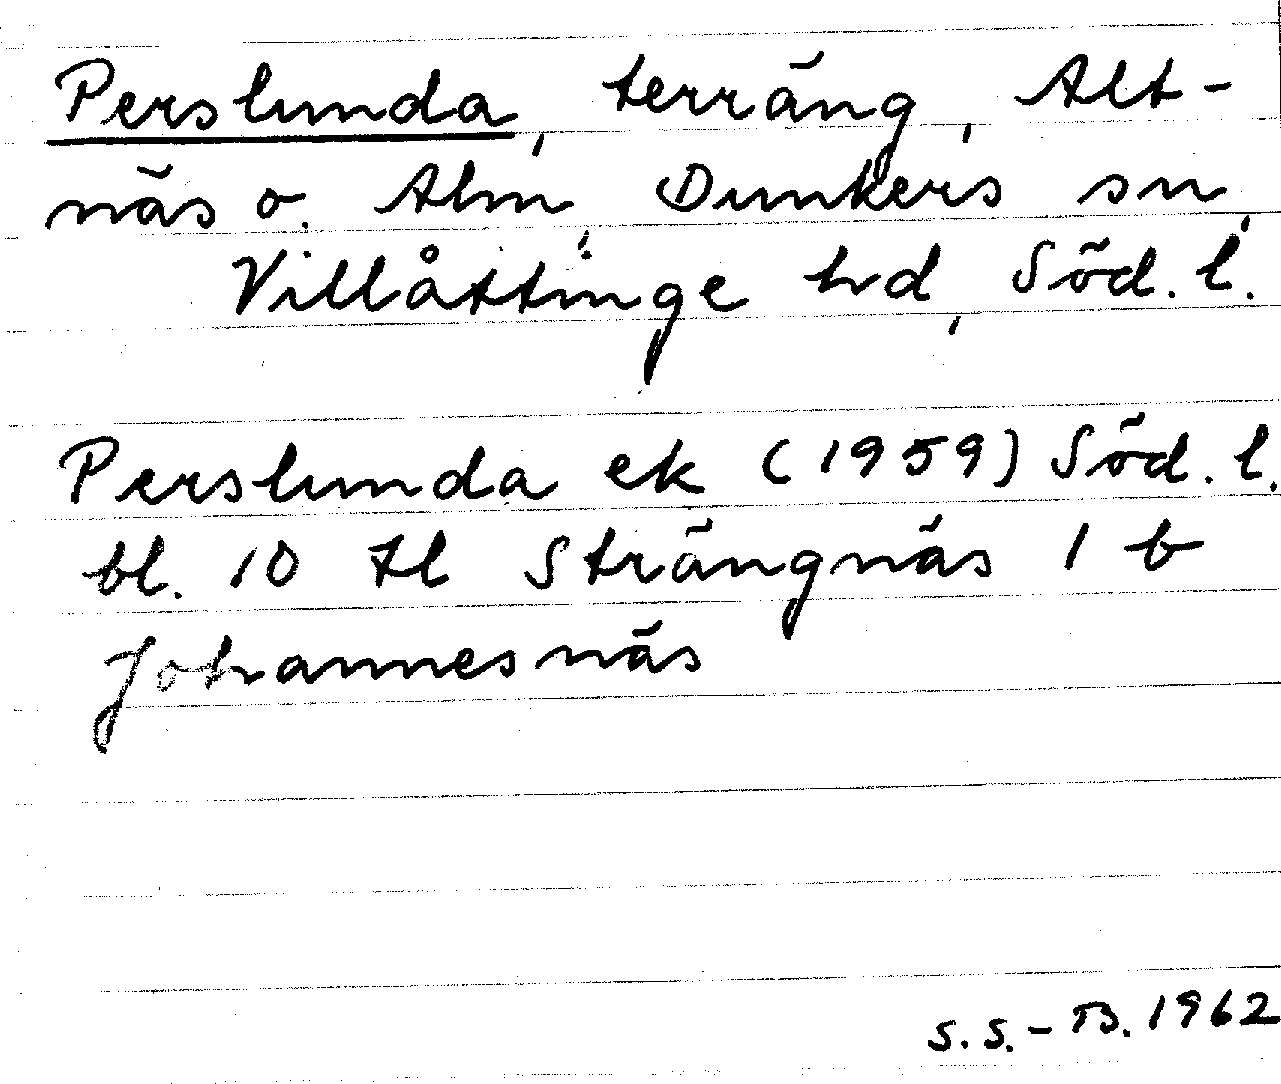 Perslunda, terräng, Alt-
näs o. Alm, Dunkers sn,
Villåttinge hd, Söd. l.
Perslunda ek (1959) Söd. l.
bl. 10 tl Strängnäs 1 b
Johannesnäs
S.S.-B. 1962